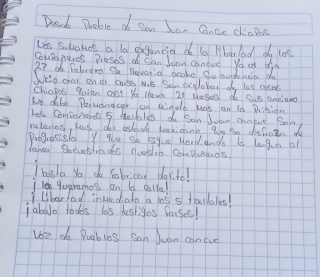 Desde Pueblo de San Juan Cancuc Chiapas
Nos Sumamos a la exgancia de la libertad de los
Compañeros Presos de San Juan cancuc ya el dia
27 de febrero Se llevaria acabo Su audencia de
Juicio oral en el caso San cristobal de las casas
Chiapas quien casi ya lleva 21 Meses de Sus
No debe Permanecer un minuto Mas en la Prisión
los Compañeros 5 tseltales de San Juan cancuc Son
rehenes, Mas del estado Mexicano que Se disfraza de
Progresista y que Se Sigue Mordiendo la lengua al
tener Secuestrados nuestro Compañeros.
¡basta ya de fabricar delito!
¡los queremos en la calle!
¡Libertad inmediato a los 5 tseltales!
¡abajo todos los testigos falsos!
Voz de Pueblos San Juan cancuc